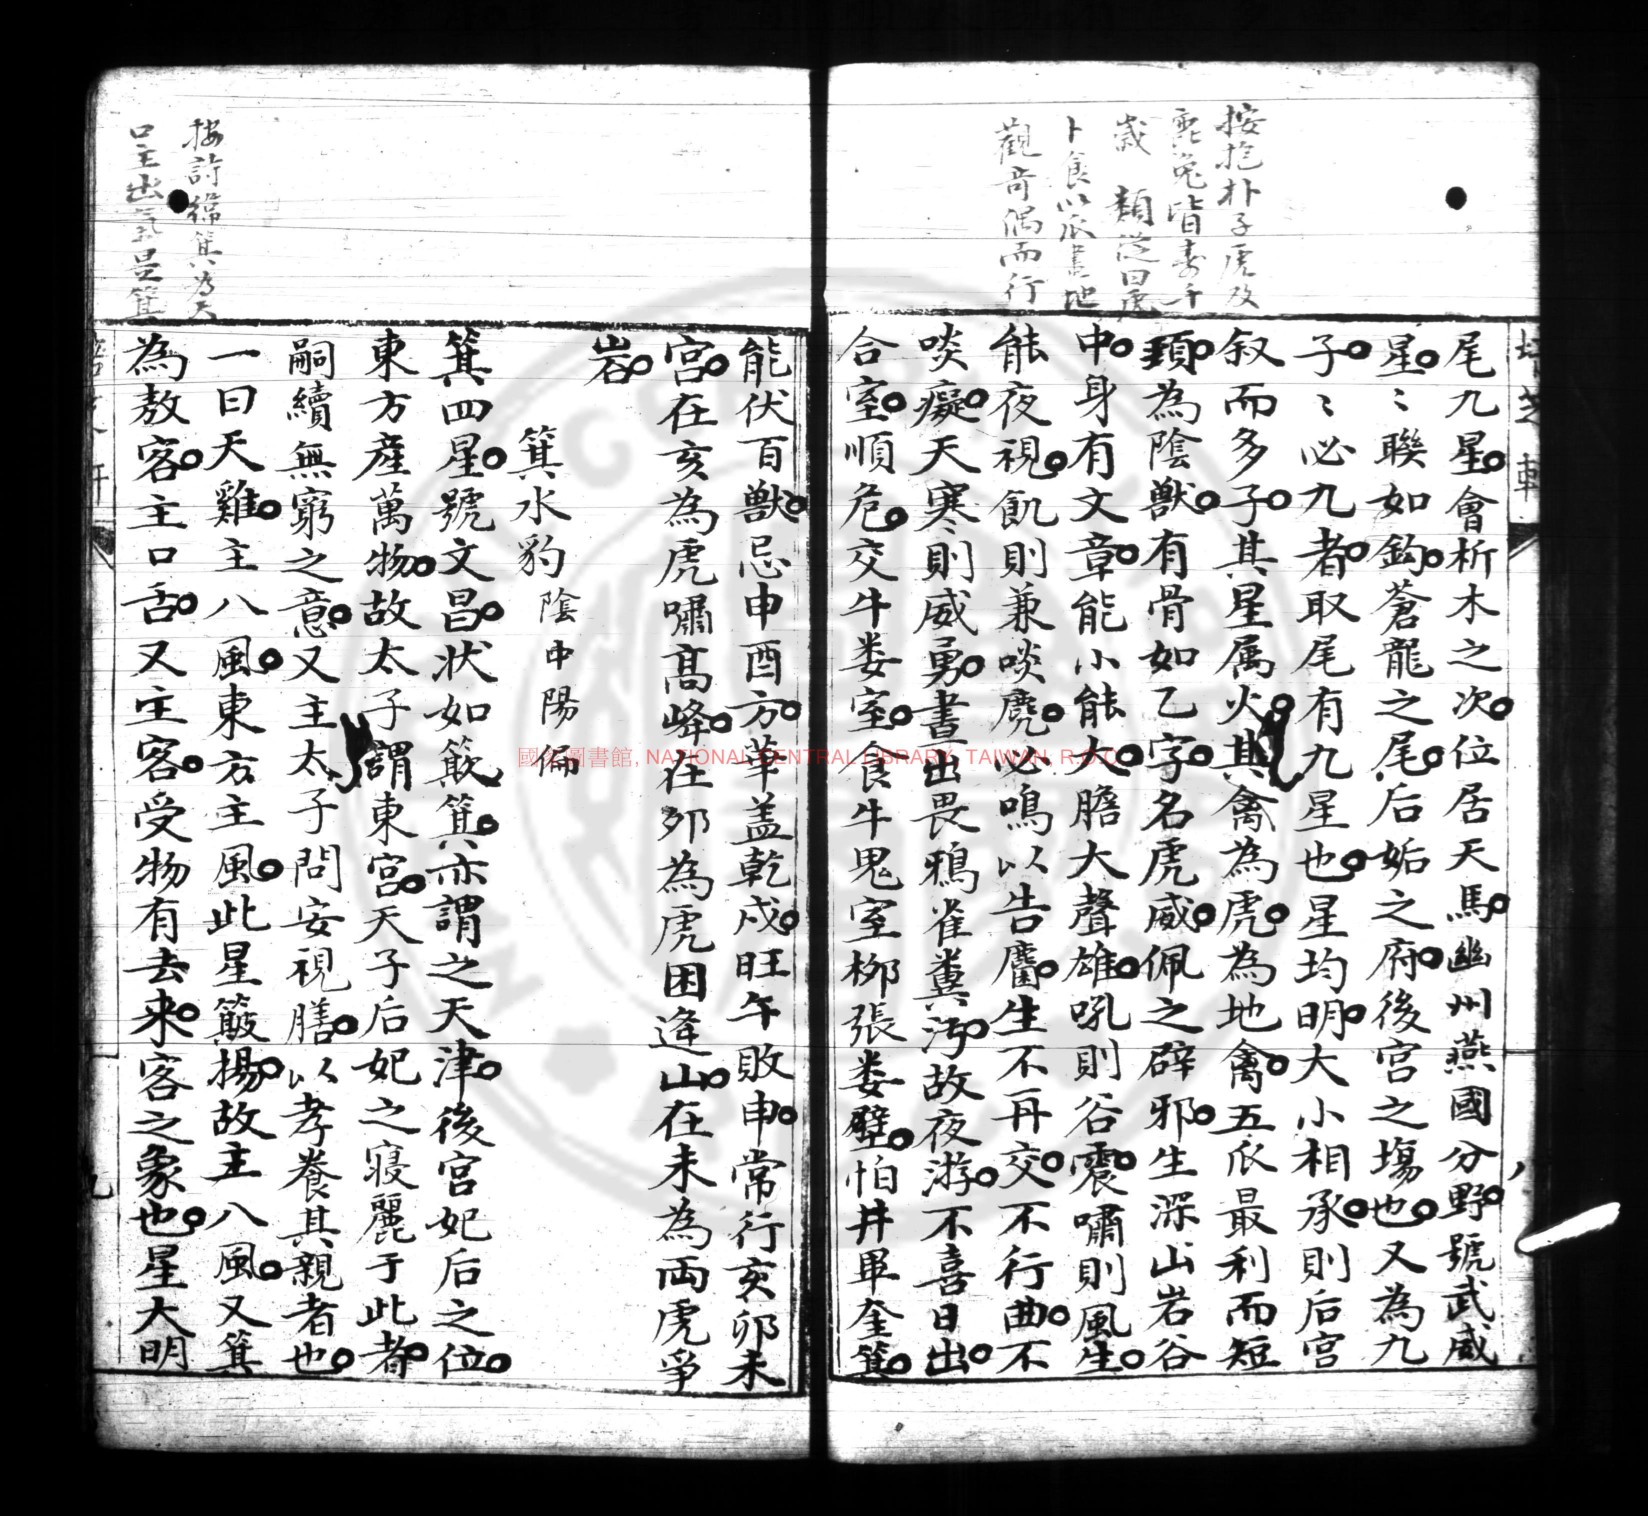 按抱朴子虎及
鹿兔皆壽千
歲 類從曰虎
卜食以爪畫地
觀奇偶而行
尾九星會析木之次位居天馬幽州燕國分野號武威
星〻聯如鈎蒼龍之尾后妬之府後宮之塲也又為九
子〻必九者取尾有九星也星均明大小相承則后宮
叙而多子其星属火其禽為虎為地禽五爪最利而短
頸為陰獸有骨如乙字名虎威佩之辟邪生深山岩谷
中身有文章能小能大膽大聲雄吼則谷震嘯則風生
能夜視飢則兼啖麂必鳴以告麕生不再交不行曲不
啖癡天寒則威勇晝出畏鴉雀糞汚故夜游不喜日出
合室順危交牛婁室食牛鬼室柳張婁壁怕井畢奎箕
能伏百獸忌申酉方華盖乾戌旺午敗申常行亥卯未
宮在亥為虎嘯髙峰在夘為虎困逢山在未為両虎爭
岩
箕水豹 陰中陽偏
箕四星號文昌狀如簸箕亦謂之天津後宮妃后之位
東方産萬物故太子謂東宮天子后妃之寢麗于此者
嗣續無窮之意又主太子問安視膳以孝養其親者也
一曰天雞主八風東方主風此星簸揚故主八風又箕
為敖客主口舌又主客受物有去来客之象也星大明
按詩緯箕為天
口主出氣是箕
國家圖書館, NATIONAL CENTRAL LIBRARY, TAIWAN, R.O.C.